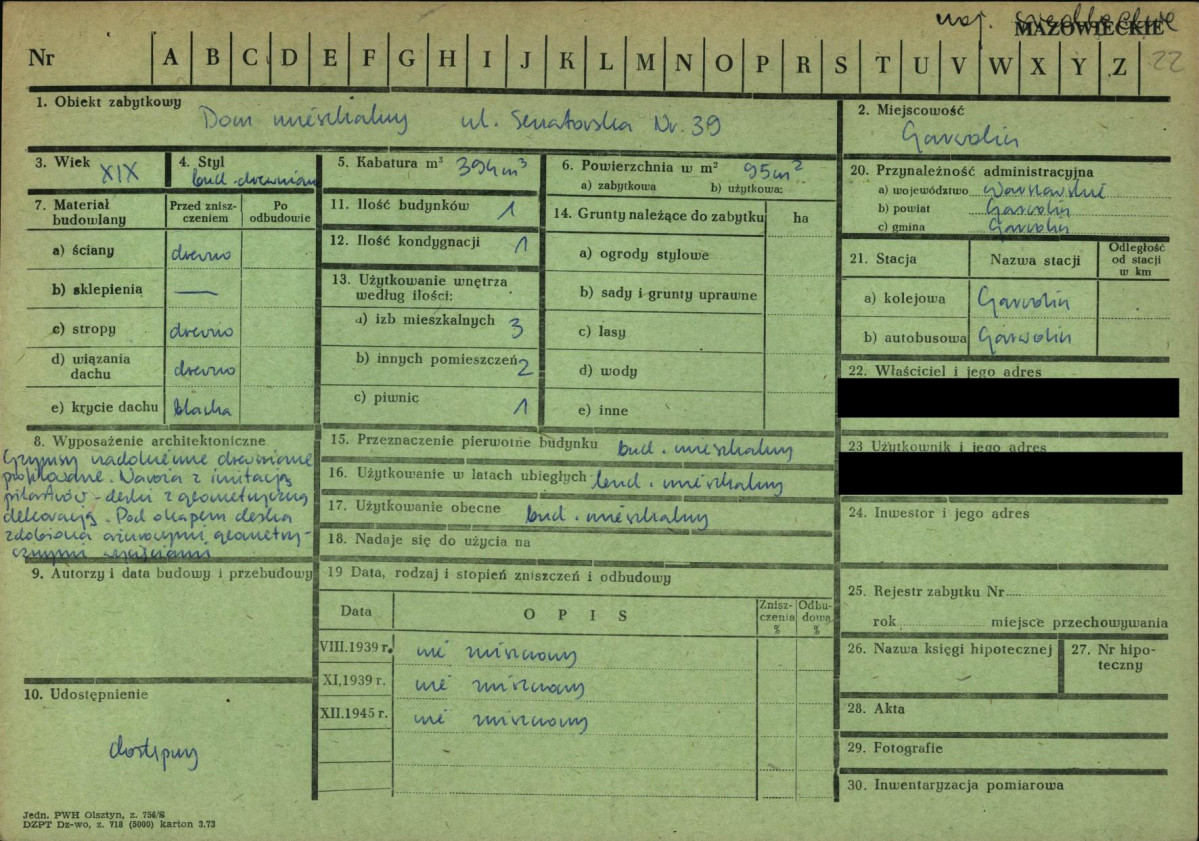 woj. siedleckie
MAZOWIECKIE
Nr A B C D E F G H I J K L M N O P R S T U V W X Y Z 22
1. Obiekt zabytkowy
Dom mieszkalny ul. Senatorska Nr. 39
2. Miejscowość
Garwolin
3. Wiek
XIX
4. Styl
bud. drewnian
5. Kabatura m³ 394 m³
6. Powierzchnia w m² 95 m²
a) zabytkowa b) użytkowa:
20. Przynależność administracyjna
a) województwo warszawskie
b) powiat Garwolin
c) gmina Garwolin
7. Materiał budowlany
Przed znisz-
czeniem
Po
odbudowie
a) ściany drewno
b) sklepienia —
c) stropy drewno
d) wiązania
dachu drewno
e) krycie dachu blacha
11. Ilość budynków 1
12. Ilość kondygnacji 1
13. Użytkowanie wnętrza
według ilości:
a) izb mieszkalnych 3
b) innych pomieszczeń 2
c) piwnic 1
14. Grunty należące do zabytku ha
a) ogrody stylowe
b) sady i grunty uprawne
c) lasy
d) wody
e) inne
21. Stacja Nazwa stacji
Odległość
od stacji
w km
a) kolejowa Garwolin
b) autobusowa Garwolin
22. Właściciel i jego adres
23 Użytkownik i jego adres
8. Wyposażenie architektoniczne
Gzymsy nadokienne drewniane
profilowane. Naroża z imitacją
pilastrów - deski z geometryczną
dekoracją. Pod okapem deska
zdobiona ażurowymi, geometry-
cznymi wycięciami
15. Przeznaczenie pierwotne budynku bud. mieszkalny
16. Użytkowanie w latach ubiegłych bud. mieszkalny
17. Użytkowanie obecne bud. mieszkalny
18. Nadaje się do użycia na
24. Inwestor i jego adres
9. Autorzy i data budowy i przebudowy
19 Data, rodzaj i stopień zniszczeń i odbudowy
Data OPIS
Znisz-
czenia
%
Odbu-
dowa
%
VIII.1939 r. nie zniszczony
XI,1939 r. nie zniszczony
XII.1945 r. nie zniszczony
25. Rejestr zabytku Nr
rok miejsce przechowywania
26. Nazwa księgi hipotecznej
27. Nr hipo-
teczny
10. Udostępnienie
dostępny
28. Akta
29. Fotografie
30. Inwentaryzacja pomiarowa
Jedn. PWH Olsztyn, z. 756/S
DZPT Dz-wo, z. 718 (5000) karton 3.73